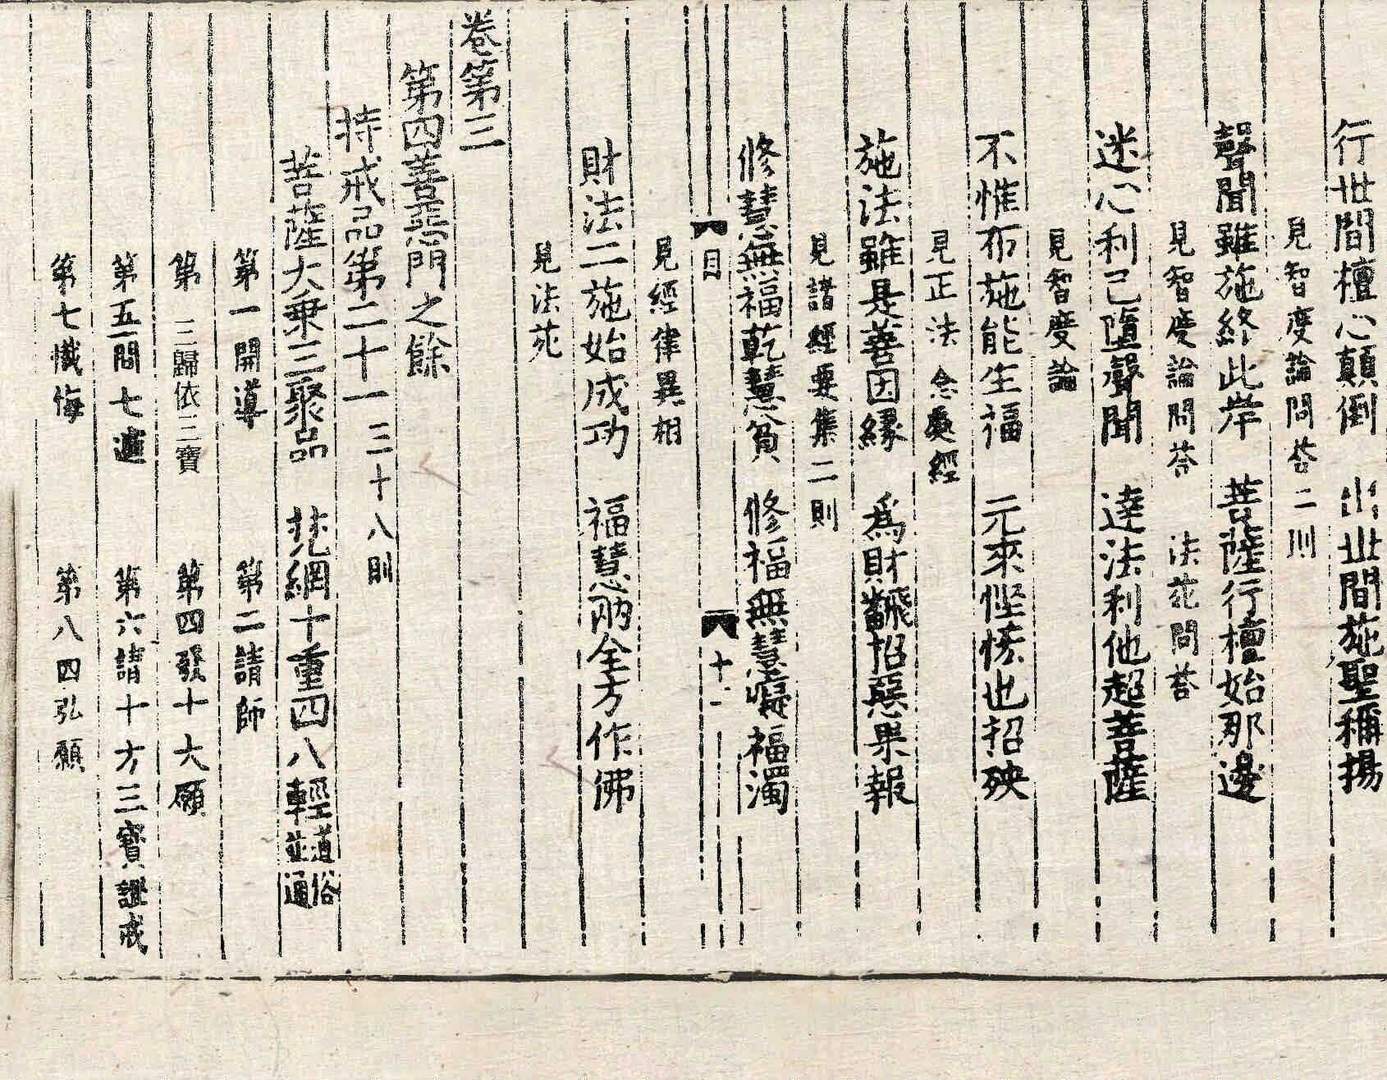 行世間檀心顛倒　出世間施聖稱揚
見智度論問荅二則
聲聞雖施終此岸　菩薩行檀始那邊
見智度論問荅　法苑問荅
迷心利己墮聲聞　達法利他超菩薩
見智度論
不惟布施能生福　元來慳悋也招殃
見正法念處經
施法雖是善因緣　為財翻招惡果報
見諸經要集二則
修慧無福乾慧貧　修福無慧癡福濁
目　十一
見經律異相
財法二施始成功　福慧兩全方作佛
見法苑
卷第三
第四善惡門之餘
持戒品第二十一三十八則
菩薩大乗三聚品　梵網十重四八輕道俗並通
第一開導　第二請師
第三歸依三寶　第四發十大願
第五問七遮　第六請十方三寶證戒
第七懺悔　第八四弘願